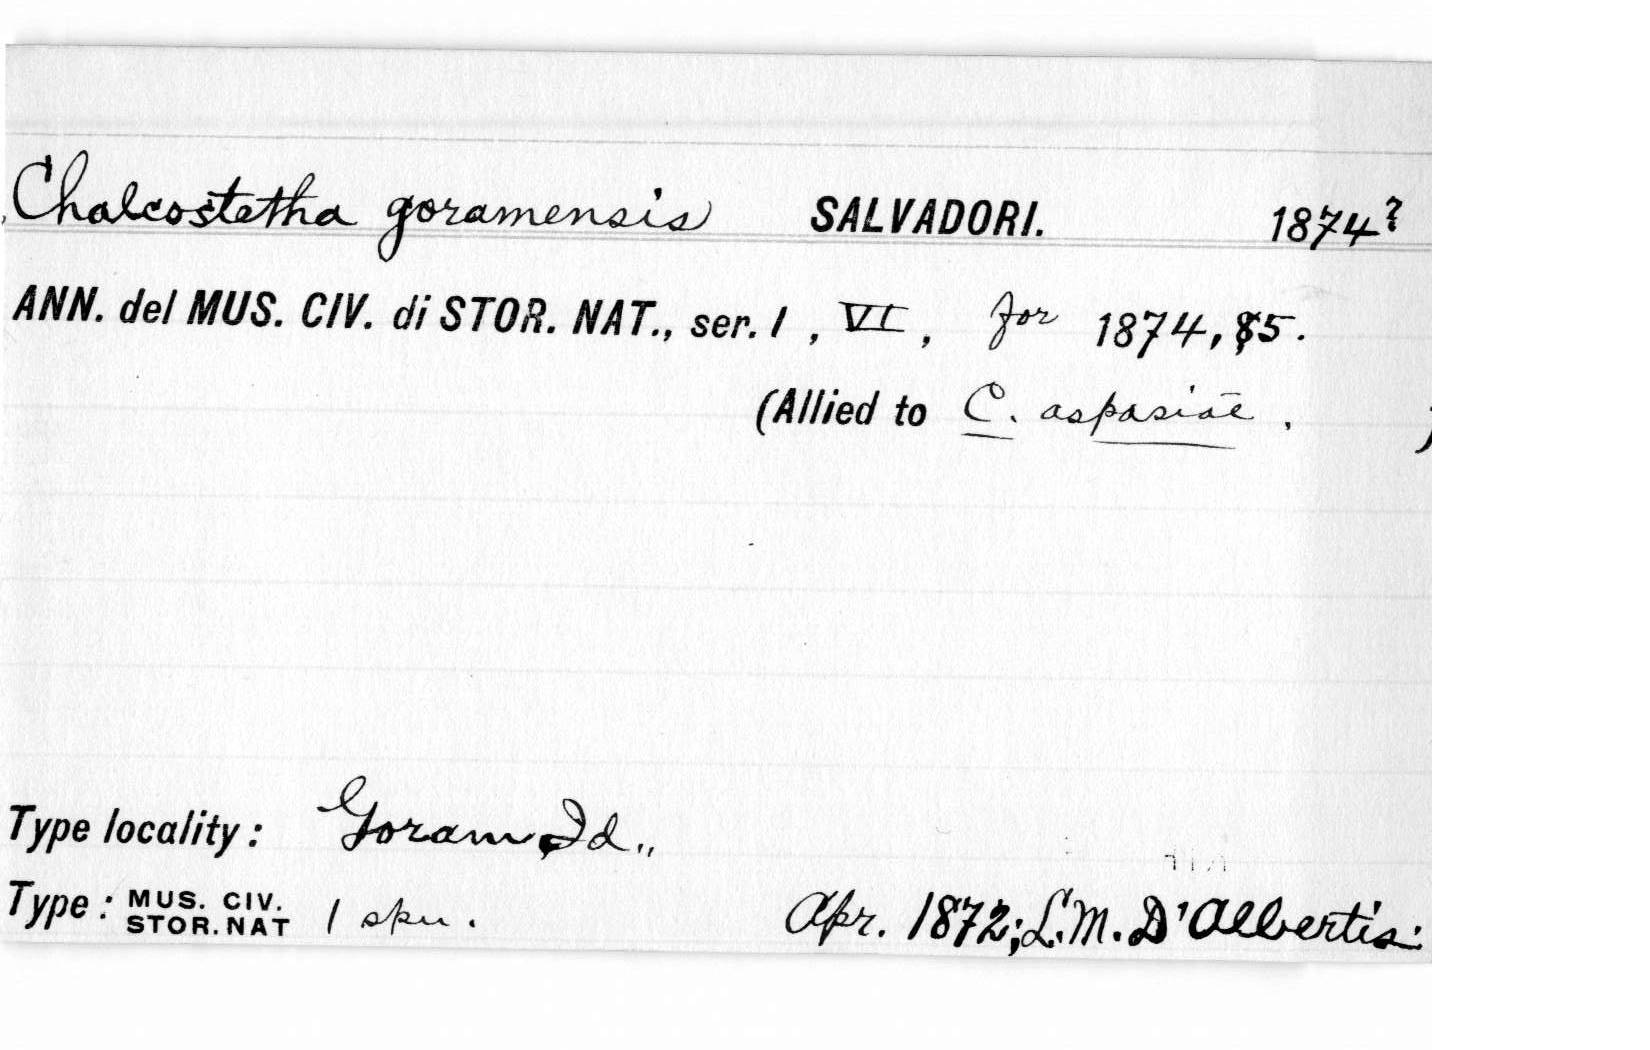 Chalcostetha goramensis SALVADORI. 1874?
ANN. del MUS. CIV. di STOR. NAT., ser. 1, VI, for 1874, 85.
(Allied to C. aspasiae. )
Type locality: Goram Id.,,
Type: MUS. CIV. STOR. NAT 1 spm. Apr. 1872; L.M. D'Albertis.